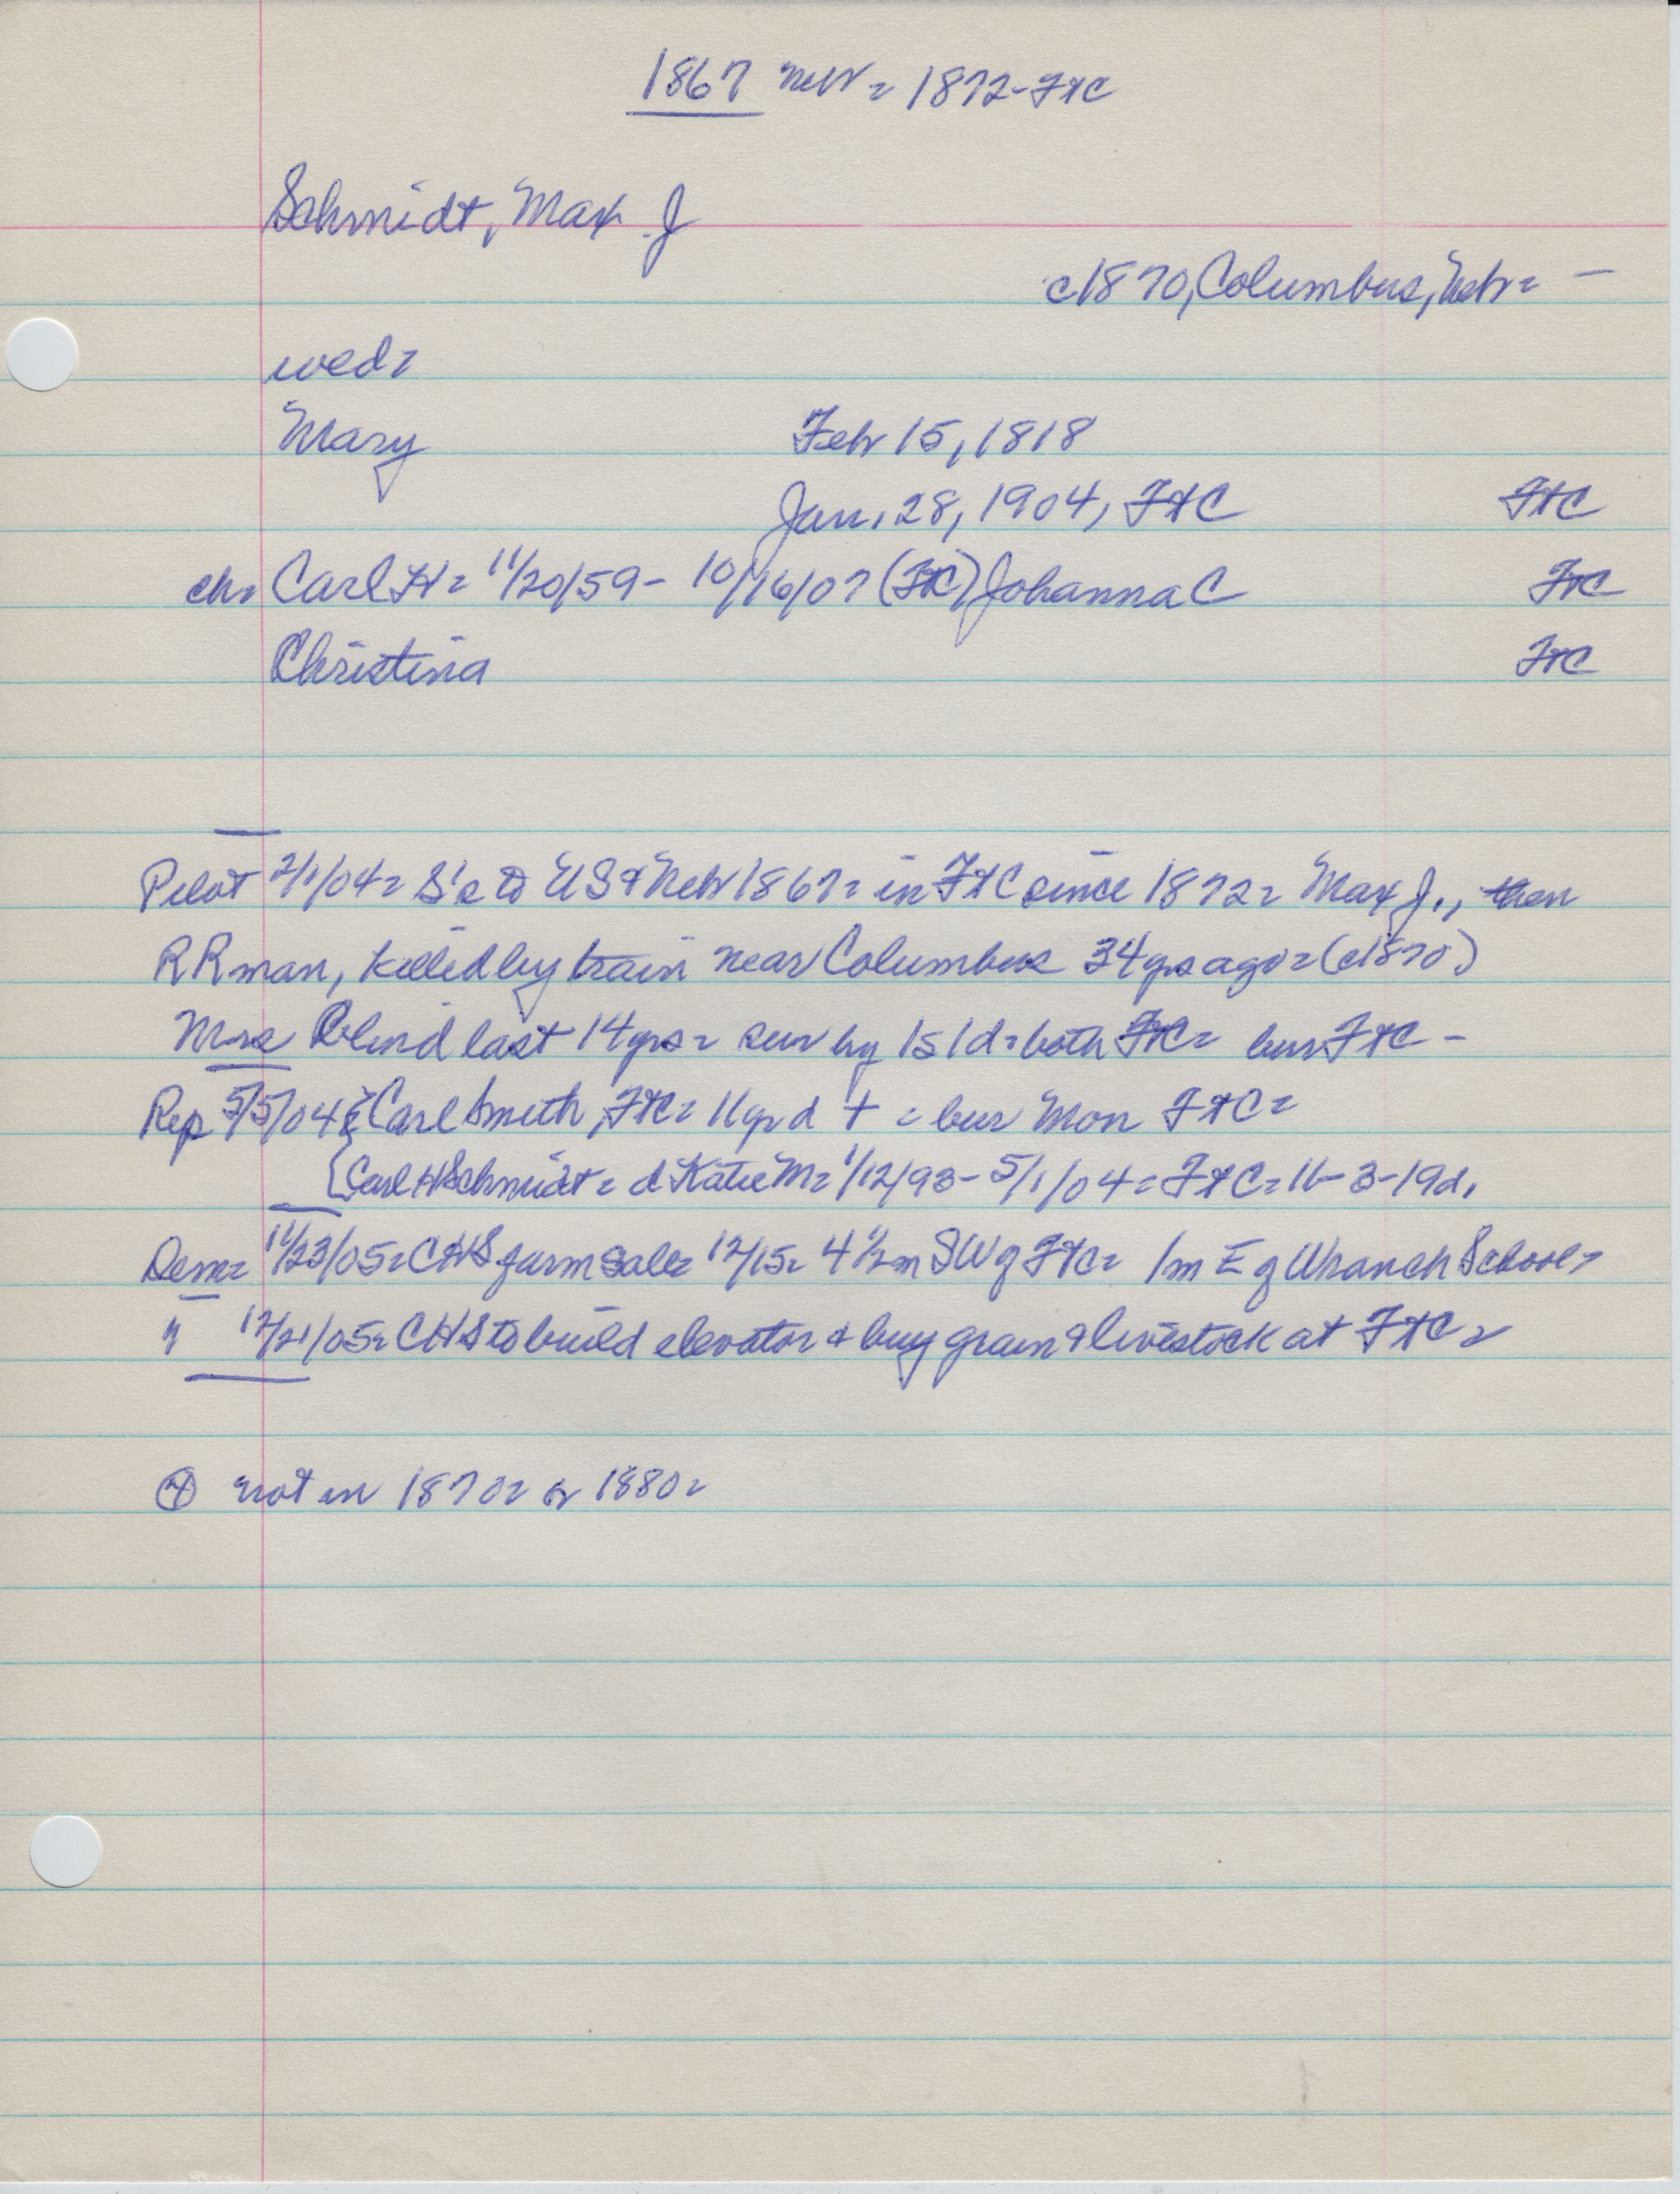 1867 Neb = 1872 - Ft C
Schmidt, Max J
c1870, Columbus, Neb = —
wed =
Mary Feb 15, 1818
Jan. 28, 1904, Ft C Ft C
ch = Carl H = 11/20/59 - 10/16/07 (Ft C) Johanna C Ft C
Christina Ft C
Pilot 2/1/04 = S's to US & Neb 1867 = in Ft C since 1872 = Max J., then
RR man, killed by train near Columbus 34 yrs ago = (c1870)
Mrs blind last 14 yrs = sur by 1s 1d = both Ft C = bur Ft C -
Rep 5/5/04 { Carl Smith, Ft C = 11 yr d + = bur Mon Ft C =
{ Carl H Schmidt = d Katie M = 1/12/93 - 5/1/04 = Ft C = 11-3-19d.
Dem = 11/23/05 = CHS farm sale = 12/15 = 4 1/2 m SW of Ft C = 1m E of School =
" 12/21/05 = CHS to build elevator & buy grain & livestock at Ft C =
not in 1870 = or 1880 =